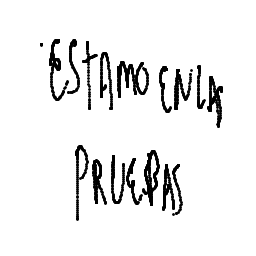 ESTAMO EN LAS
PRUEBAS